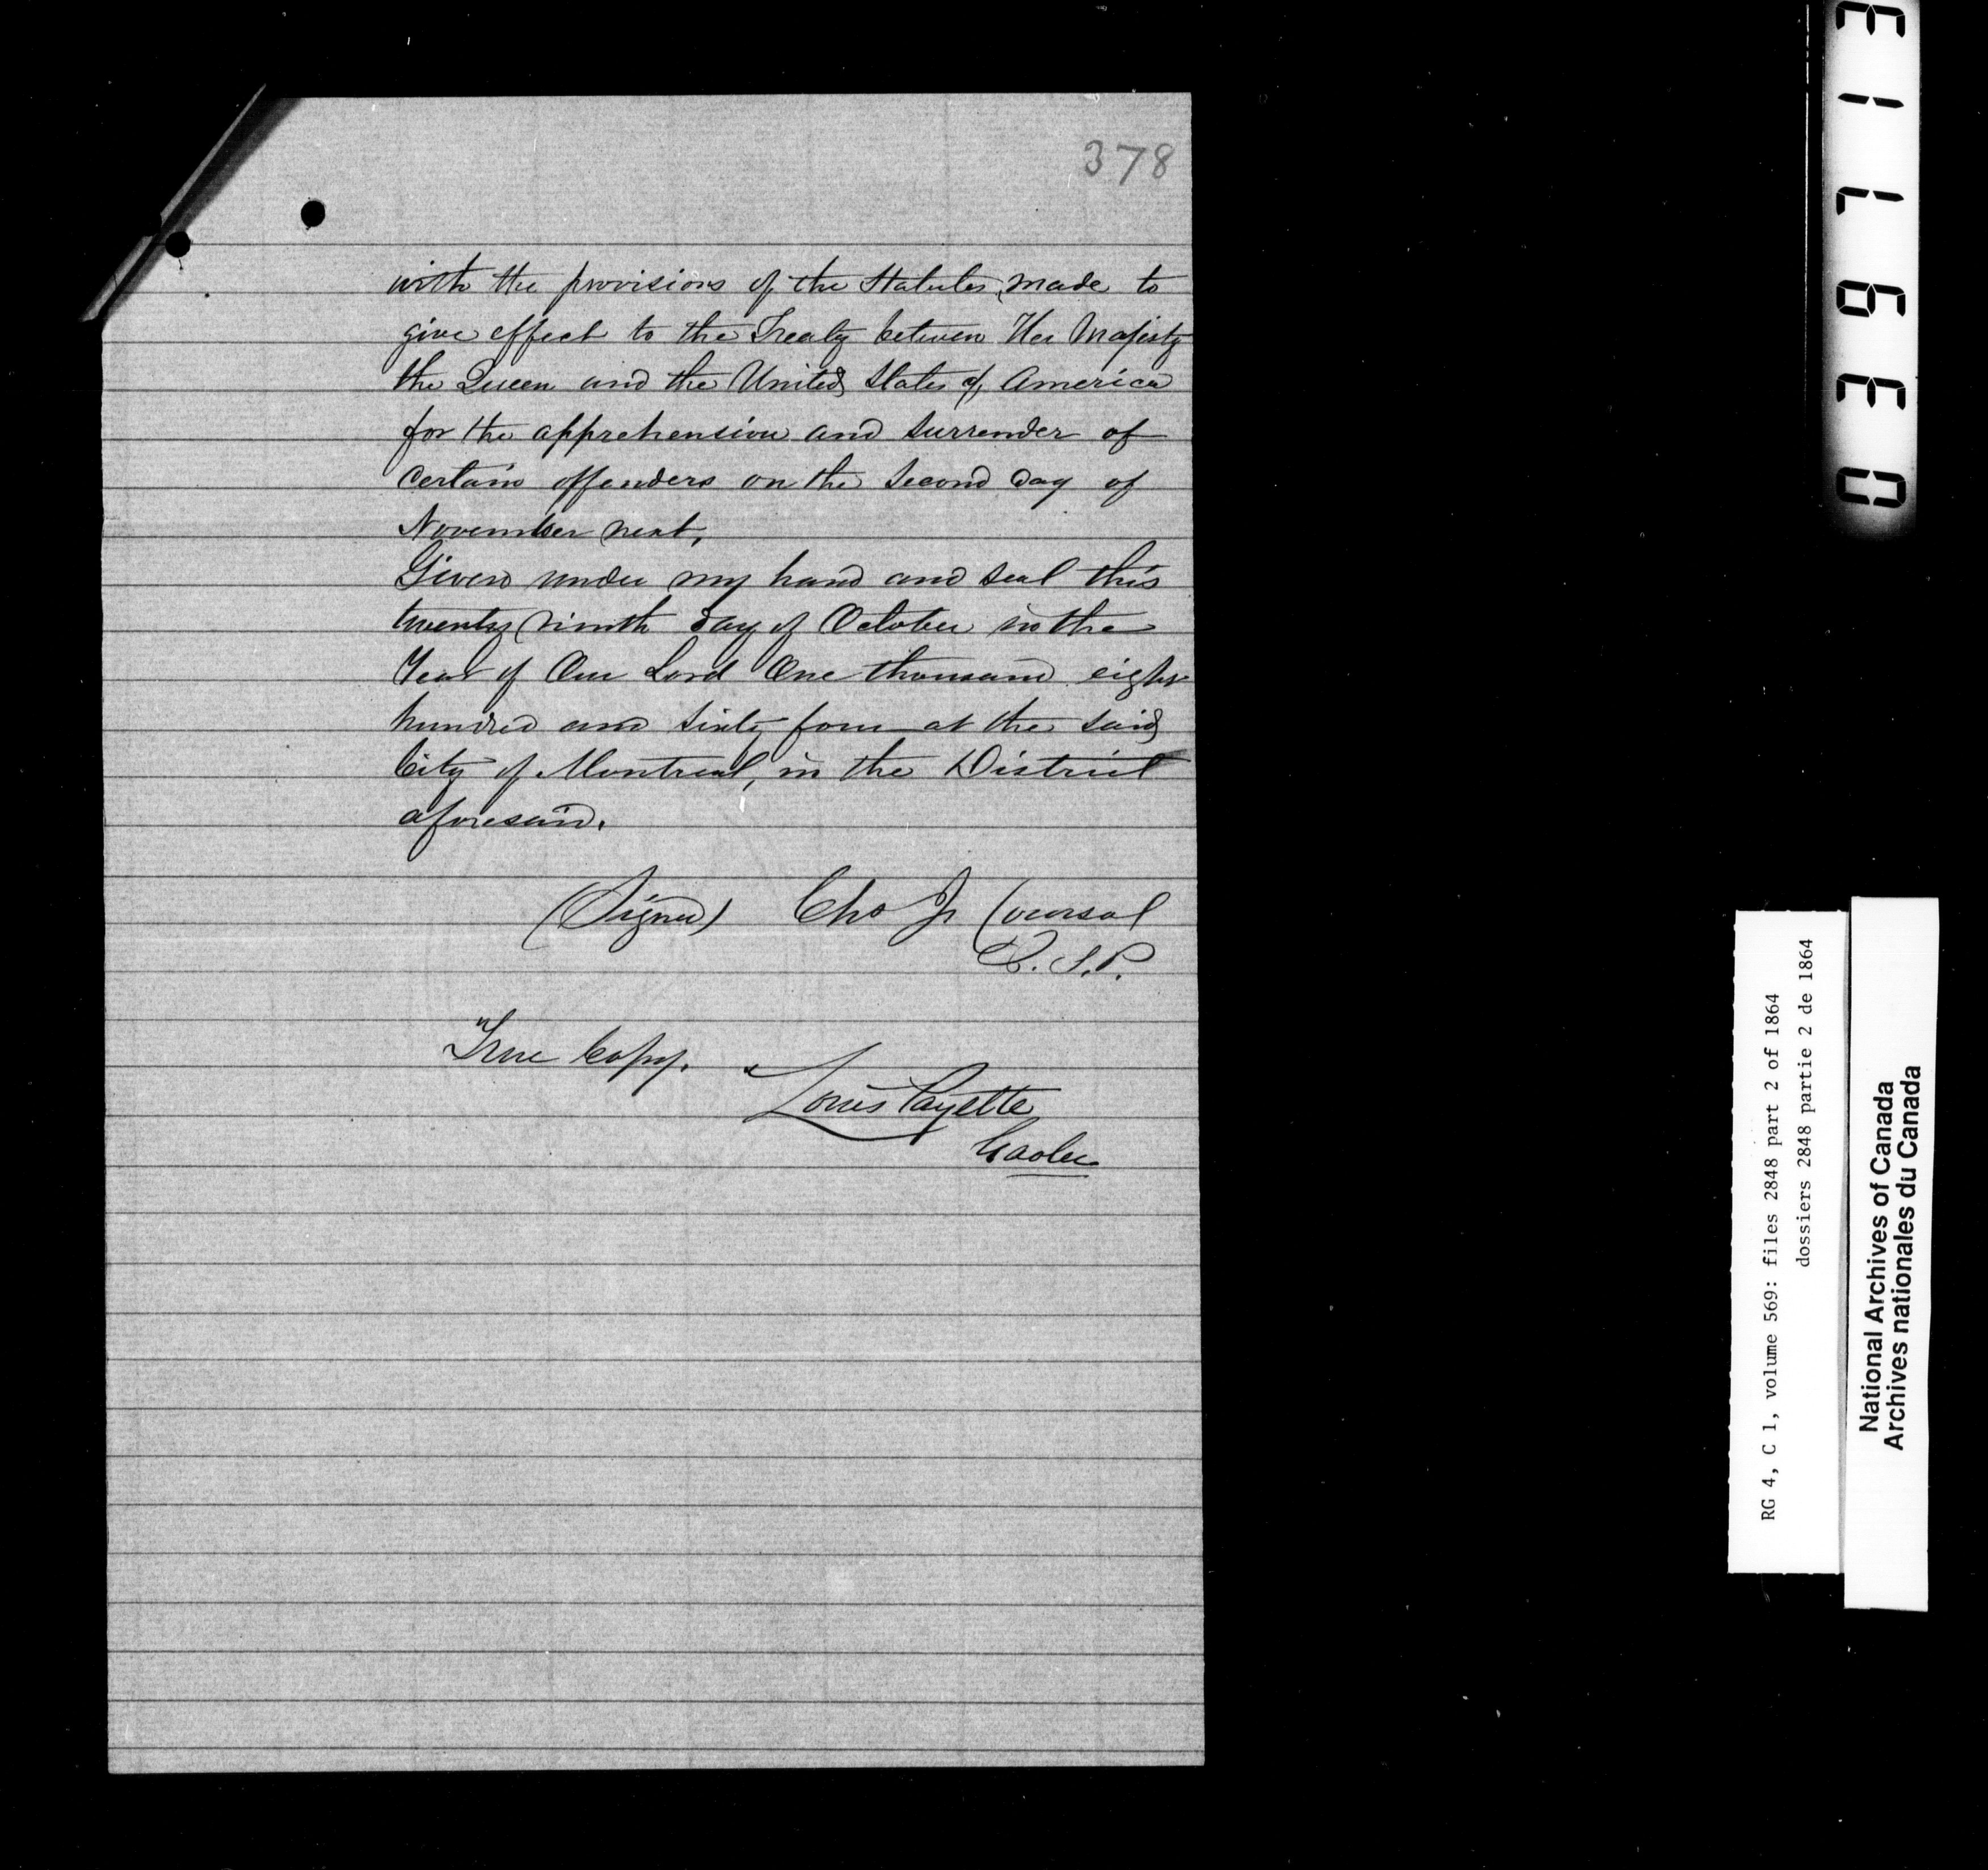 378
with the provisions of the Statutes, made to
give effect to the Treaty between Her Majesty
the Queen and the United States of America
for the apprehension and surrender of
certain offenders on the second day of
November next,
Given under my hand and seal this
twenty ninth day of October in the
Year of Our Lord One thousand eight
hundred and sixty four at the said
City of Montreal, in the District
aforesaid.
(Signed) Chs J. Coursol
J.S.P.
True Copy.
Louis Payette
Gaoler
039713
RG 4, C 1, volume 569: files 2848 part 2 of 1864
dossiers 2848 partie 2 de 1864
National Archives of Canada
Archives nationales du Canada